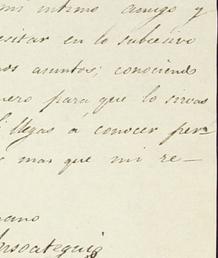 mi intimo amigo y
esitar en lo subcesivo
os asuntos; conociendo
nero para que lo sirvas
llegas a conocer per-
mas que mi re-
ano